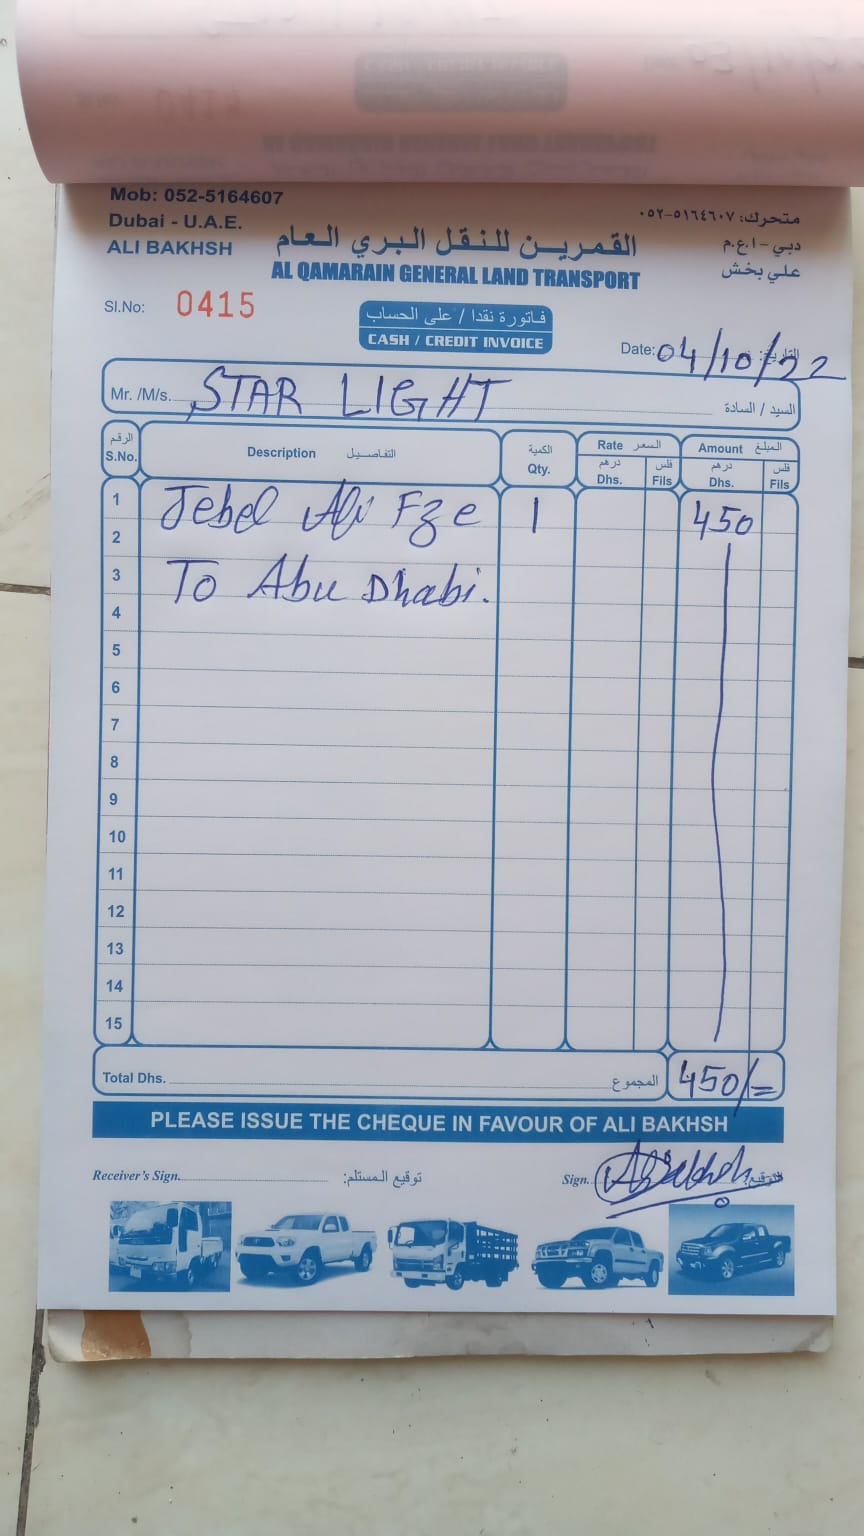 Mob: 052-5164607
متحرك: ٥١٦٤٦٠٧-٠٥٢
Dubai - U.A.E.
دبي - ا.ع.م
ALI BAKHSH
علي بخش
القمريـن للنقل البري العام
AL QAMARAIN GENERAL LAND TRANSPORT
Sl.No: 0415
فاتورة نقدا / على الحساب
CASH / CREDIT INVOICE
Date: 04/10/22 التاريخ:
Mr. /M/s. STAR LIGHT السيد / السادة
الرقم التفاصيل الكمية السعر المبلغ
S.No. Description Qty. Rate Amount
درهم فلس درهم فلس
Dhs. Fils Dhs. Fils
1 Jebel Ali Fze 1 450
2
3 To Abu Dhabi.
4
5
6
7
8
9
10
11
12
13
14
15
Total Dhs. المجموع 450/=
PLEASE ISSUE THE CHEQUE IN FAVOUR OF ALI BAKHSH
Receiver's Sign. توقيع المستلم: Sign. التوقيع